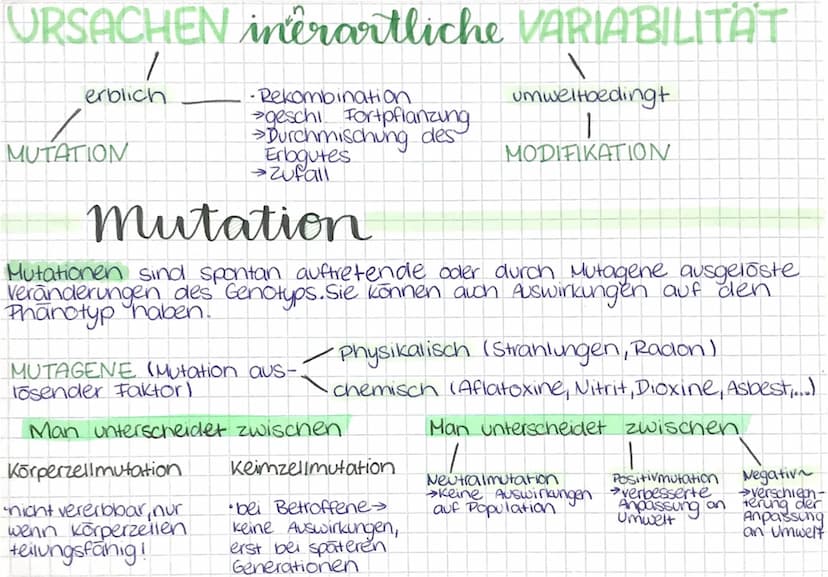 URSACHEN inerartliche VARIABILITÄT
n
erblich
· Rekombination
→ geschl. Fortpflanzung
→ Durchmischung des
Erbgutes
→ Zufall
umweltbedingt
MUTATION
MODIFIKATION
Mutation
Mutationen sind spontan auftretende oder durch Mutagene ausgelöste
Veränderungen des Genotyps. Sie können auch Auswirkungen auf den
Phänotyp haben.
MUTAGENE (Mutation aus-
lösender Faktor)
physikalisch (Strahlungen, Radon)
chemisch (Aflatoxine, Nitrit, Dioxine, Asbest,...)
Man unterscheidet zwischen
Körperzellmutation
· nicht vererbbar, nur
wenn Körperzellen
teilungsfähig!
Keimzellmutation
· bei Betroffene →
keine Auswirkungen,
erst bei späteren
Generationen
Man unterscheidet zwischen
Neutralmutation
→ keine Auswirkungen
auf Population
Positivmutation
→ verbesserte
Anpassung an
Umwelt
Negativ~
→ verschlech-
terung der
Anpassung
an Umwelt